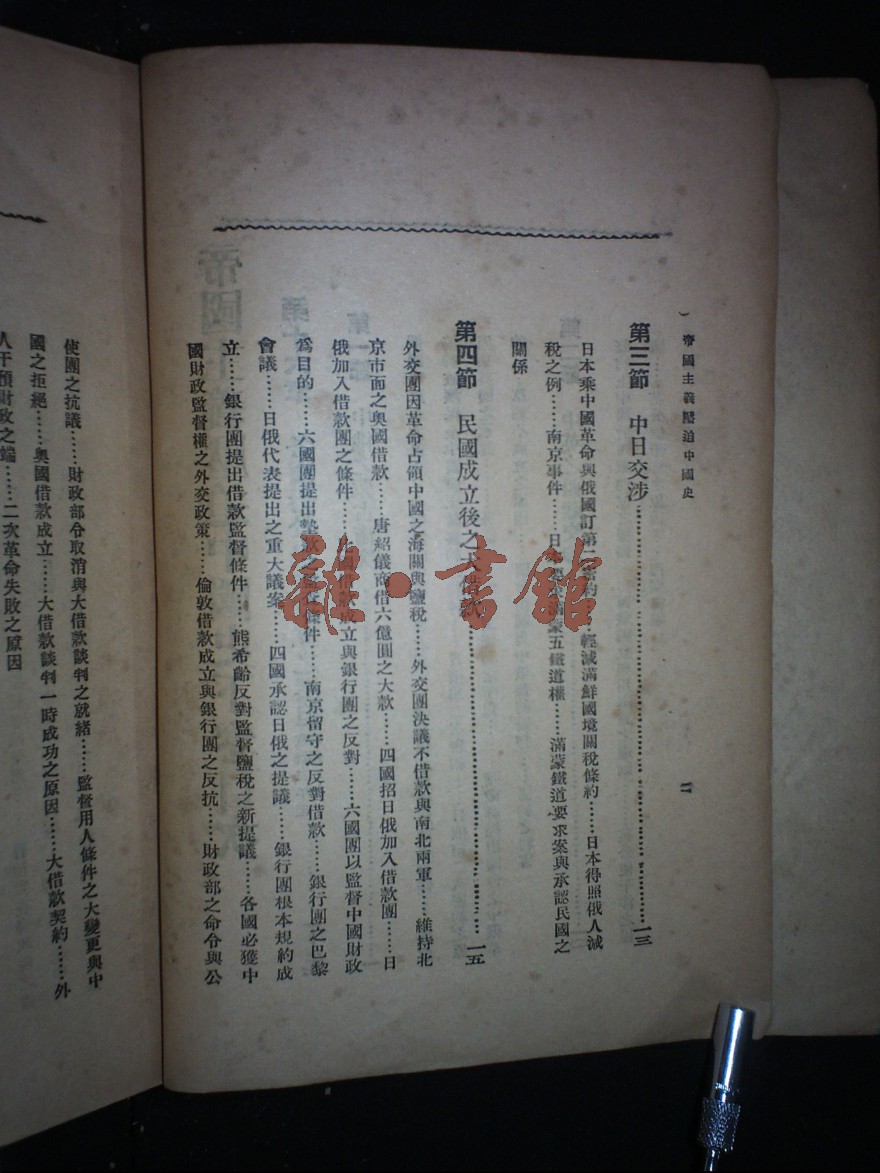 帝國主義壓迫中國史
二
第三節 中日交涉……一三
日本乘中國革命與俄國訂第二密約……輕減滿鮮國境關稅條約……日本得照俄人減
稅之例……南京事件……日本要求滿蒙五鐵道權……滿蒙鐵道要求案與承認民國之
關係
第四節 民國成立後之大借款……一五
外交團因革命占領中國之海關與鹽稅……外交團決議不借款與南北兩軍……維持北
京市面之奧國借款……唐紹儀商借六億圓之大款……四國招日俄加入借款團……日
俄加入借款團之條件……國借款成立與銀行團之反對……六國團以監督中國財政
爲目的……六國團提出墊款之條件……南京留守之反對借款……銀行團之巴黎
會議……日俄代表提出之重大議案……四國承認日俄之提議……銀行團根本規約成
立……銀行團提出借款監督條件……熊希齡反對監督鹽稅之新提議……各國必獲中
國財政監督權之外交政策……倫敦借款成立與銀行團之反抗……財政部之命令與公
使團之抗議……財政部令取消與大借款談判之就緒……監督用人條件之大變更與中
國之拒絕……奧國借款成立……大借款談判一時成功之原因……大借款契約……外
人干預財政之端……二次革命失敗之原因
雜·書館